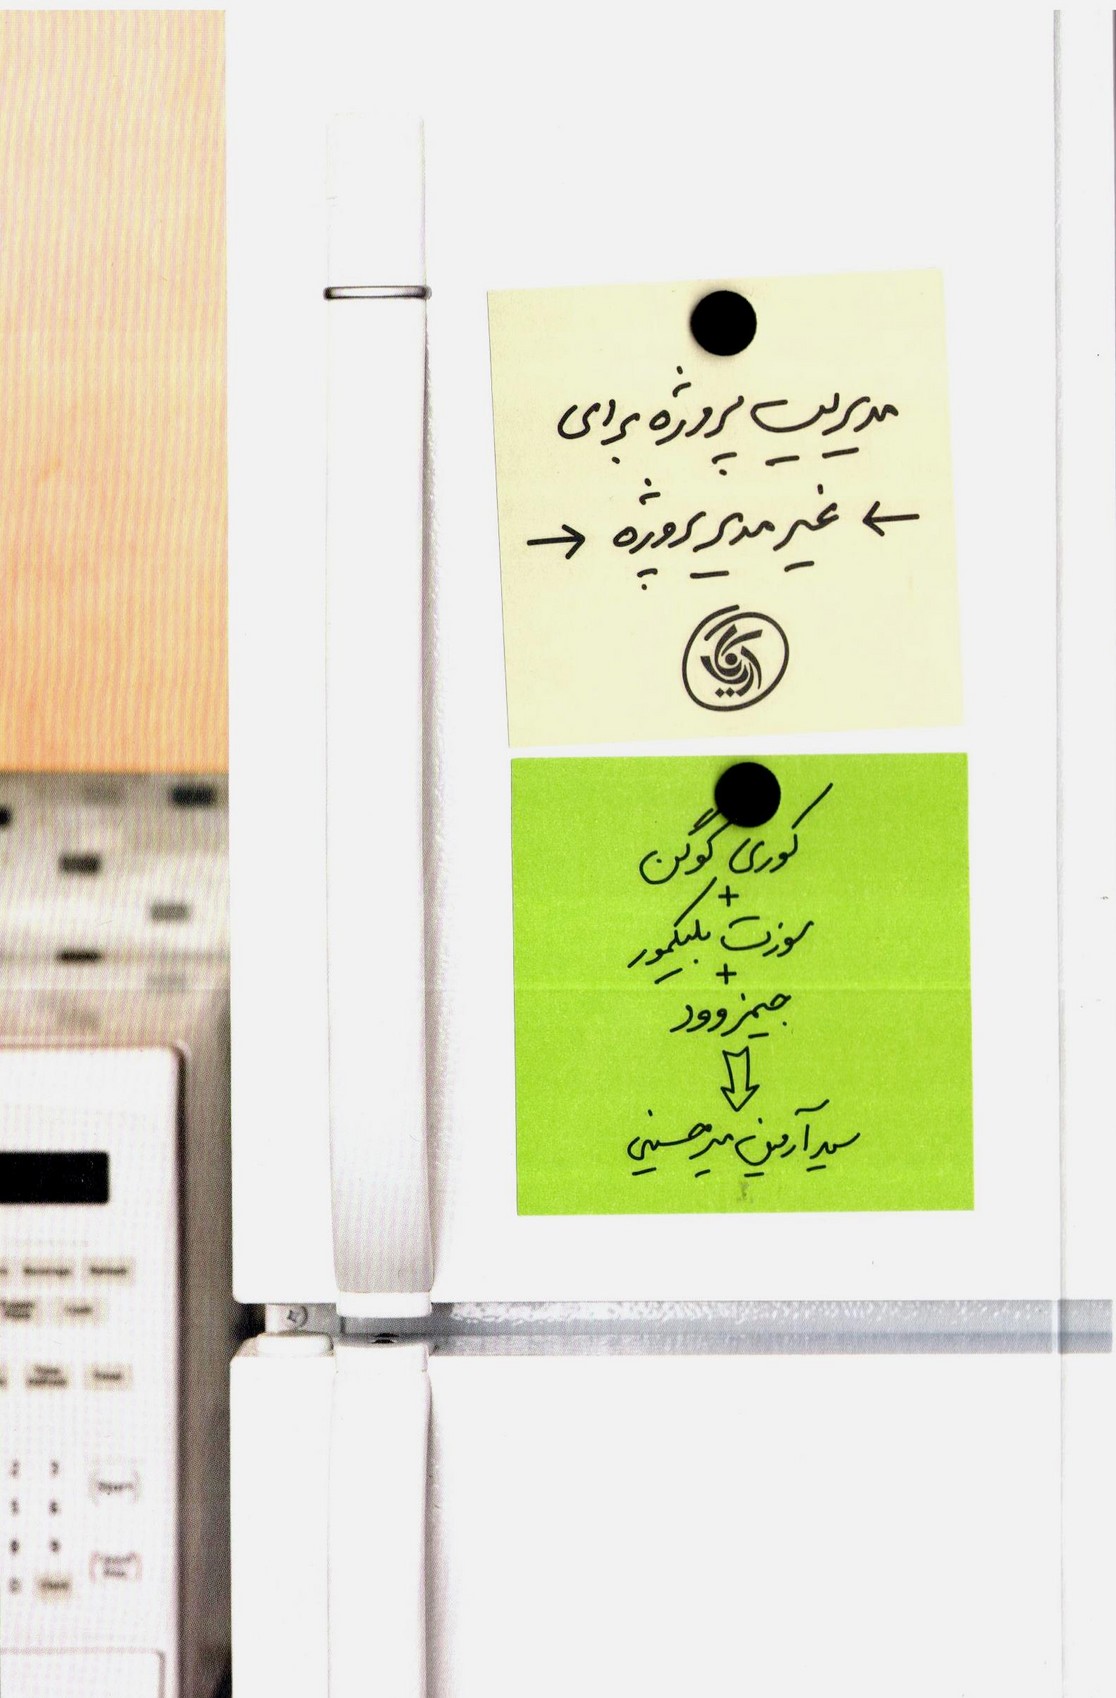 مدیریت پروژه برای
← غیر مدیر پروژه →
آریانا
کوری کوگن
+
سوزت بلیکمور
+
جیمز وود
سید آرمین میرحسینی
2 3
5 6
8 9
0